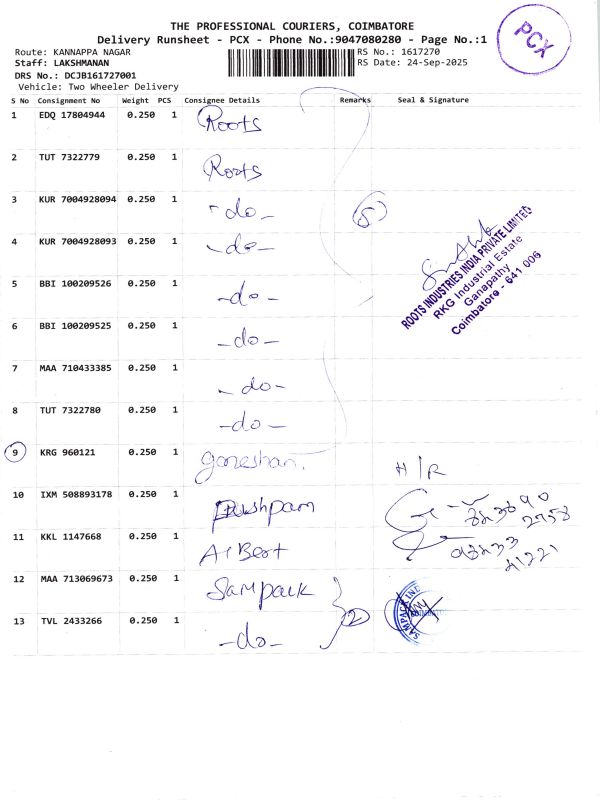 THE PROFESSIONAL COURIERS, COIMBATORE
Delivery Runsheet - PCX - Phone No.:9047080280 - Page No.:1
PCX
Route: KANNAPPA NAGAR
RS No.: 1617270
Staff: LAKSHMANAN
RS Date: 24-Sep-2025
DRS No.: DCJB161727001
Vehicle: Two Wheeler Delivery
S No Consignment No Weight PCS Consignee Details Remarks Seal & Signature
1 EDQ 17804944 0.250 1 Roots
2 TUT 7322779 0.250 1 Roots
3 KUR 7004928094 0.250 1 -do-
8
4 KUR 7004928093 0.250 1 -do-
ROOTS INDUSTRIES INDIA PRIVATE LIMITED
RKG Industrial Estate
Ganapathy
Coimbatore - 641 006
5 BBI 100209526 0.250 1 -do-
6 BBI 100209525 0.250 1 -do-
7 MAA 710433385 0.250 1 -do-
8 TUT 7322780 0.250 1 -do-
9 KRG 960121 0.250 1 ganeshan. H/R
10 IXM 508893178 0.250 1 Pushpam
11 KKL 1147668 0.250 1 AlBert
12 MAA 713069673 0.250 1 Sampack
2
SAMPACK IND
13 TVL 2433266 0.250 1 -do-